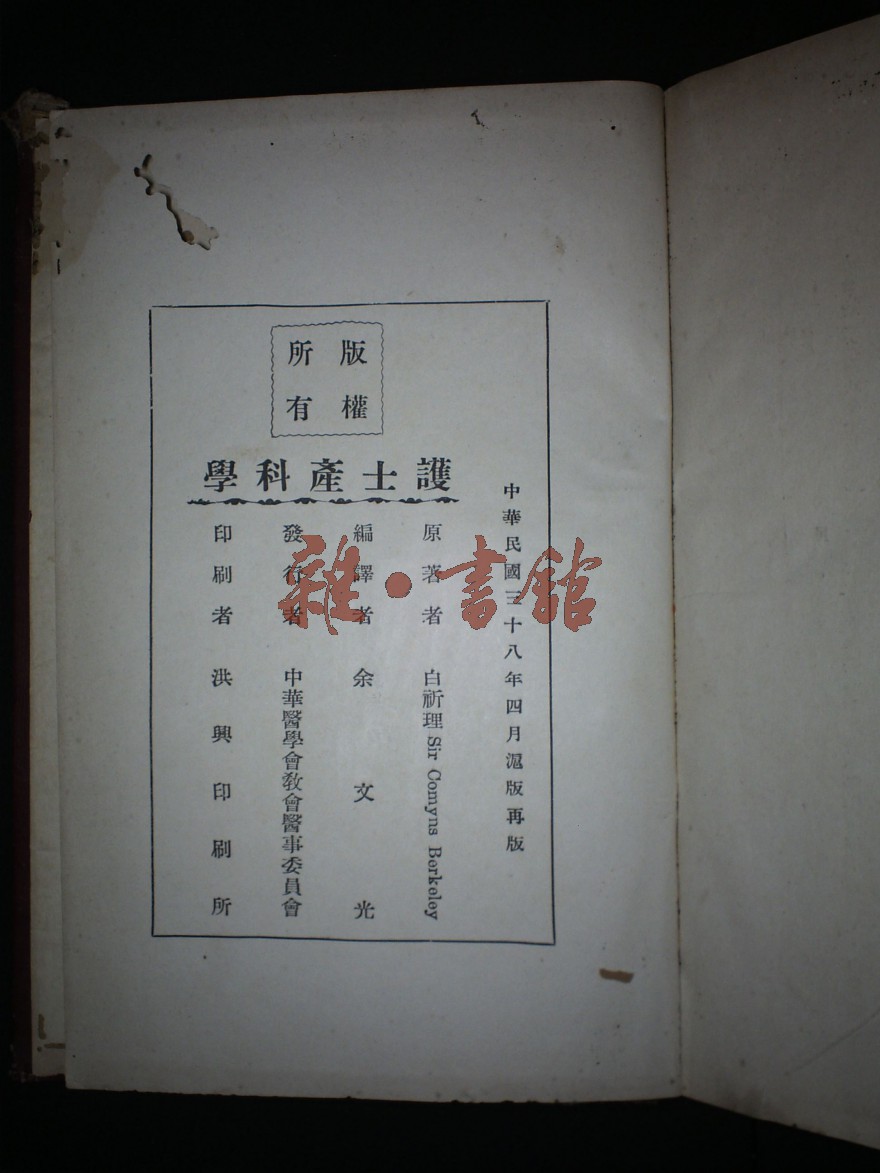 版權
所有
中華民國三十八年四月滬版再版
護士產科學
原著者 白祈理 Sir Comyns Berkeley
編譯者 余文光
發行者 中華醫學會教會醫事委員會
印刷者 洪興印刷所
雜·書館